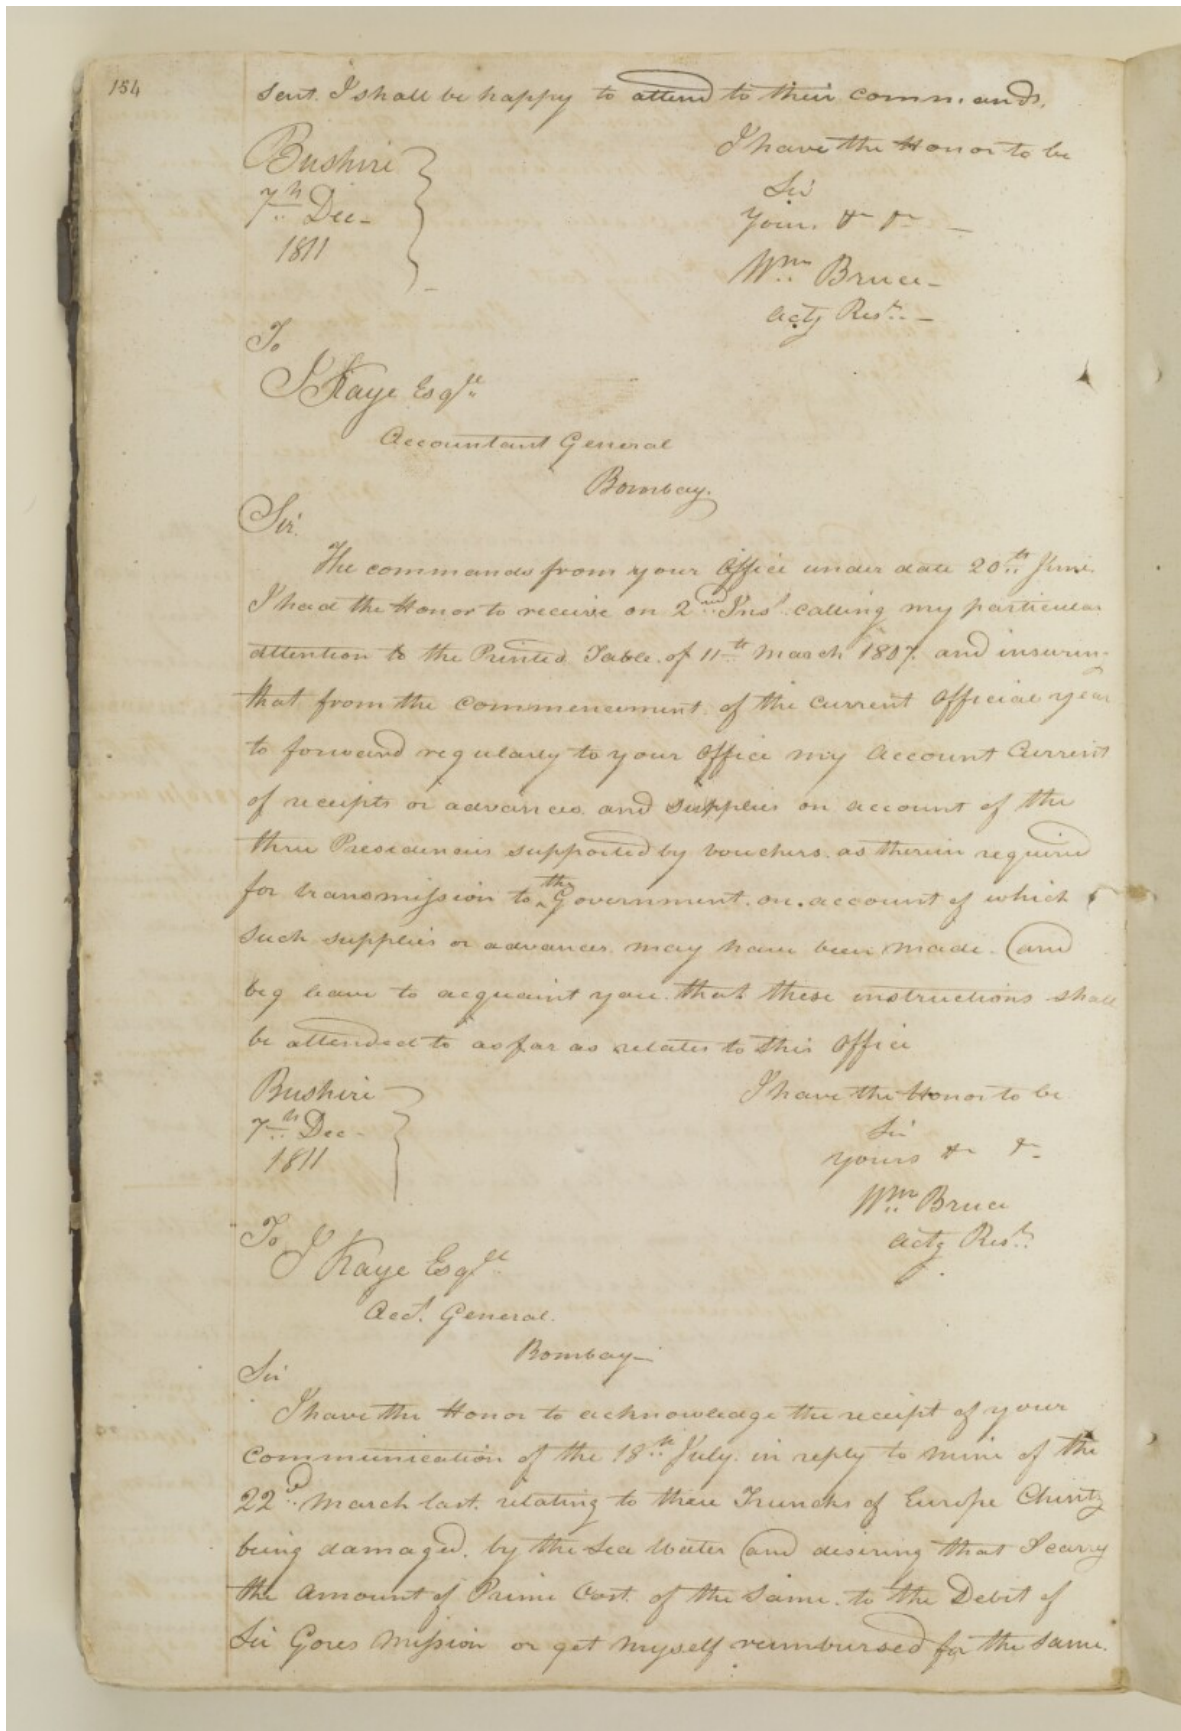 154
sent. I shall be happy to attend to their commands.
I have the Honor to be
Bushire
Sir
7th Dec-
Yours &c &c -
1811
Wm Bruce-
Actg Rest. -
To
J Kaye Esqre
Accountant General
Bombay.
Sir.
The commands from your Office under date 20th June.
I had the Honor to receive on 2nd Inst. calling my particular
attention to the Printed Table. of 11th March 1807. and
that from the commencement. of the current Official year
to forward regularly to your Office my Account Current
of receipts or advances. and supplies on account of the
three Presidencies supported by vouchers. as therein required
for transmission to the Government. on. account of which
such supplies or advances. may have been made. and
beg leave to acquaint you. that these instructions shall
be attended to as far as relates to this Office
Bushire
I have the Honor to be
7th Dec-
Sir
1811
Yours &c &c
Wm Bruce
Actg Rest.
To
J Kaye Esqre
Acct. General.
Bombay-
Sir
I have the Honor to acknowledge the receipt of your
communication of the 18th July. in reply to mine of the
22d March last. relating to three Truncks of Europe Chintz
being damaged. by the Sea Water and desiring that I carry
the amount of Prime Cost. of the same. to the Debit of
Sir Gores Mission or get myself reimbursed for the same.